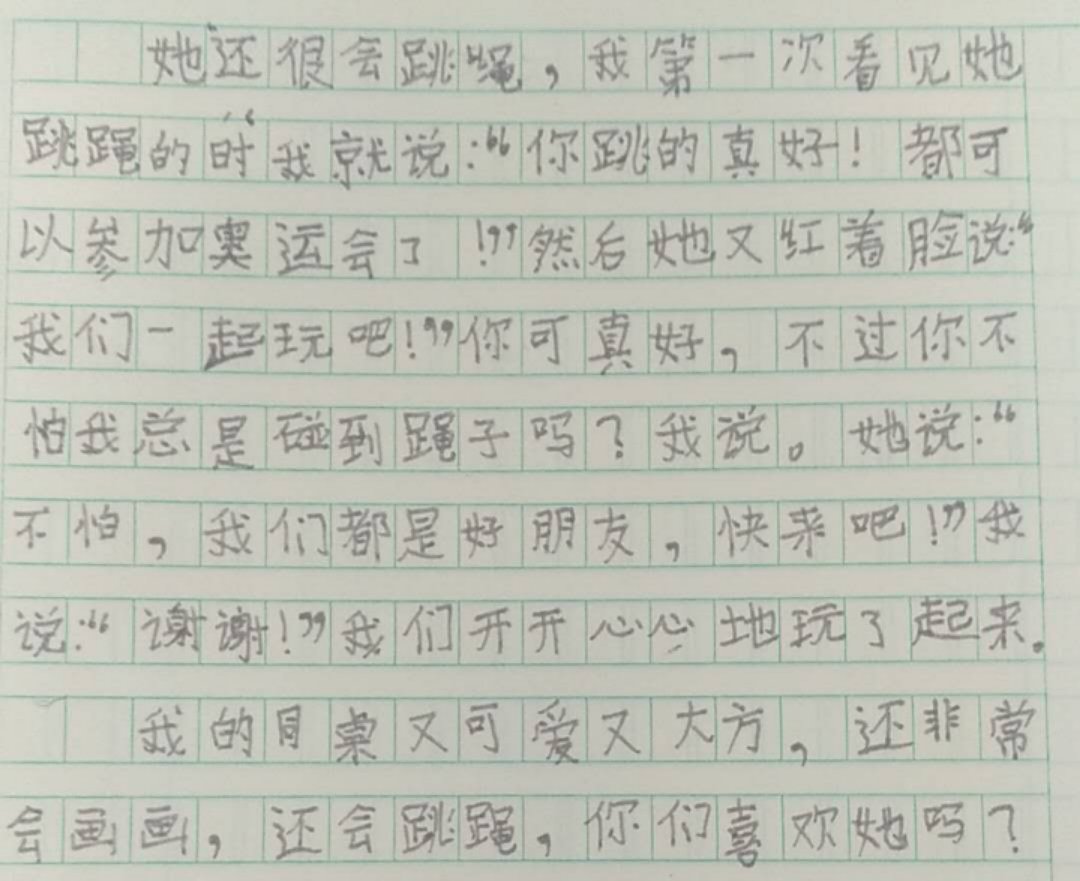 她还很会跳绳，我第一次看见她
跳绳的时我就说：“你跳的真好！都可
以参加奥运会了！”然后她又红着脸说：“
我们一起玩吧！”你可真好，不过你不
怕我总是碰到绳子吗？我说。她说：“
不怕，我们都是好朋友，快来吧！”我
说：“谢谢！”我们开开心心地玩了起来。
我的同桌又可爱又大方，还非常
会画画，还会跳绳，你们喜欢她吗？